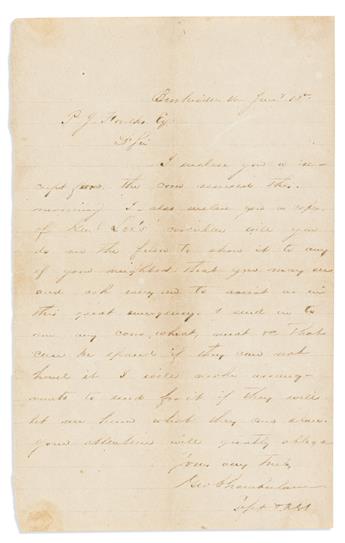 P. J. Esq.
D Sir
I enclose you a re-
ceipt for the corn received this
morning I also enclose you a copy
of Genl Lee's circular will you
do me the favor to show it to any
of your neighbors that you may see
and ask every one to assist us in
this great emergency & send in to
me any corn, wheat, meat &c That
can be spared if they can not
haul it I will make arrange-
ments to send for it if they will
let me know what they can spare.
Your attention will greatly oblige
yours very truly
Geo Chamberlaine
Capt & ACS